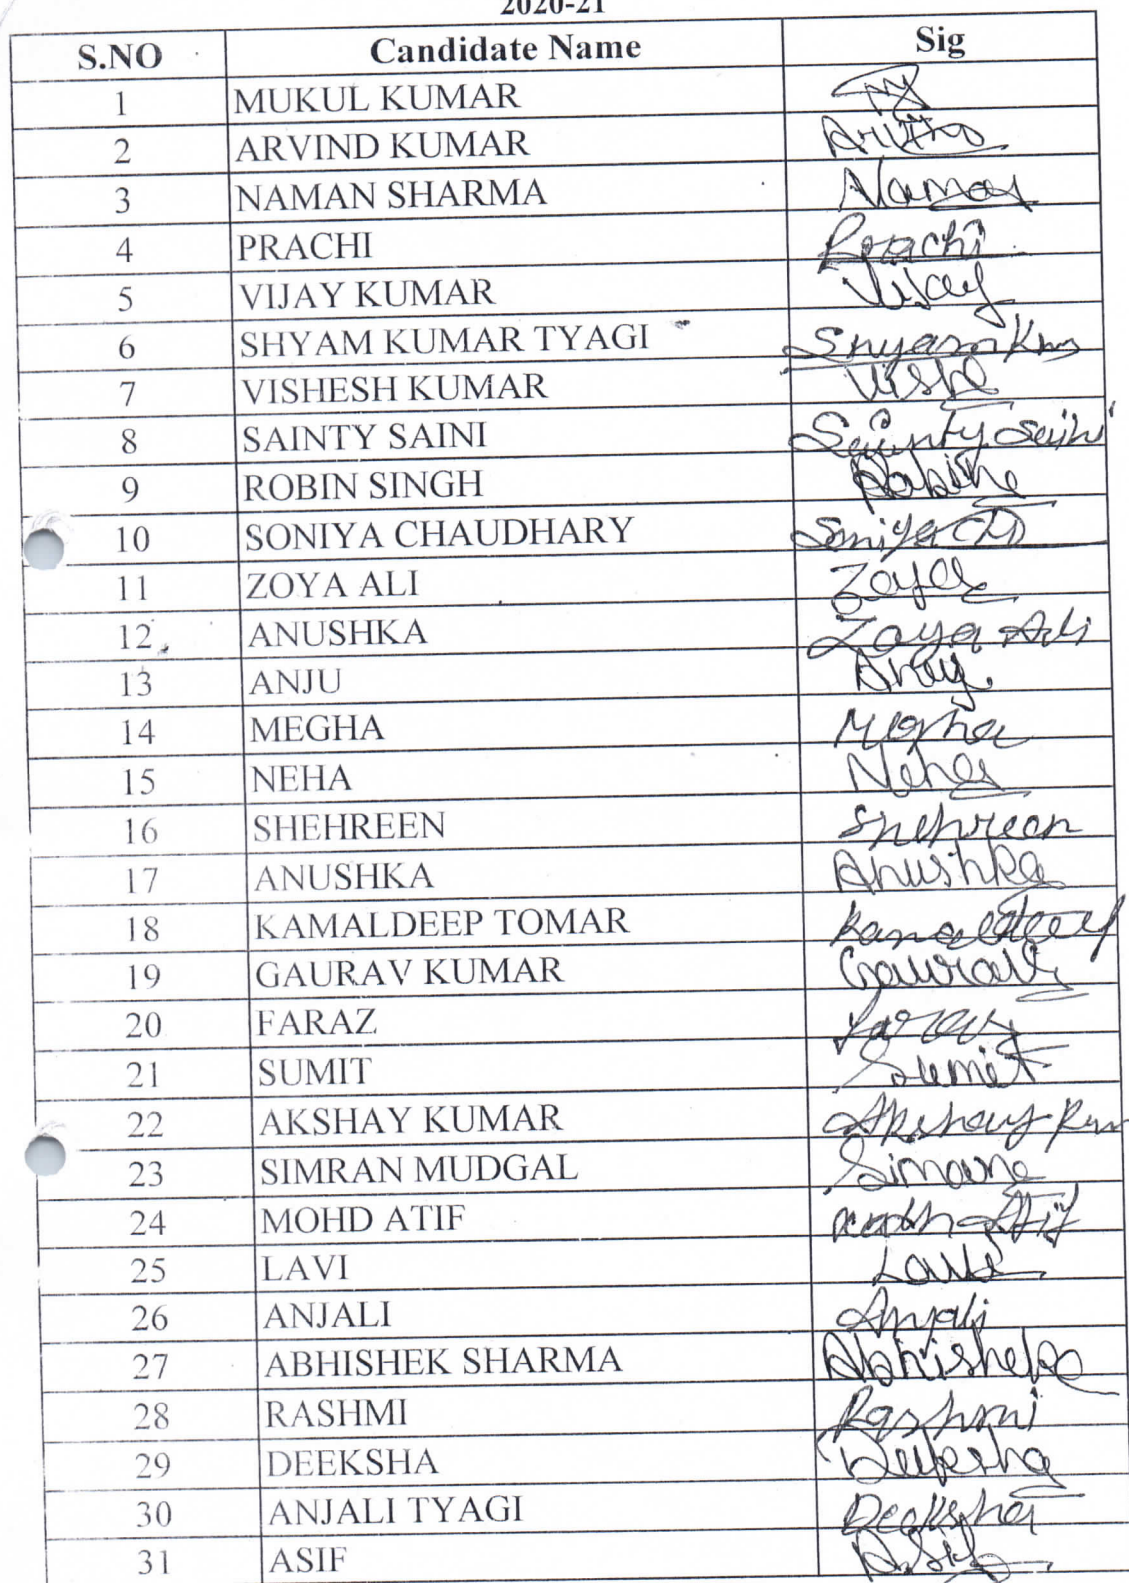 2020-21
S.NO Candidate Name Sig
1 MUKUL KUMAR
2 ARVIND KUMAR
3 NAMAN SHARMA Naman
4 PRACHI Prachi
5 VIJAY KUMAR Vijay
6 SHYAM KUMAR TYAGI Shyam Kum
7 VISHESH KUMAR
8 SAINTY SAINI Sainty Saini
9 ROBIN SINGH
10 SONIYA CHAUDHARY Soniya Ch
11 ZOYA ALI Zoya
12 ANUSHKA Zoya Ali
13 ANJU
14 MEGHA Megha
15 NEHA Neha
16 SHEHREEN Shehreen
17 ANUSHKA Anushka
18 KAMALDEEP TOMAR Kamaldeep
19 GAURAV KUMAR Gaurav
20 FARAZ Faraz
21 SUMIT Sumit
22 AKSHAY KUMAR Akshay Kum
23 SIMRAN MUDGAL
24 MOHD ATIF Atif
25 LAVI
26 ANJALI Anjali
27 ABHISHEK SHARMA Abhishek
28 RASHMI Rashmi
29 DEEKSHA
30 ANJALI TYAGI Deeksha
31 ASIF Asif